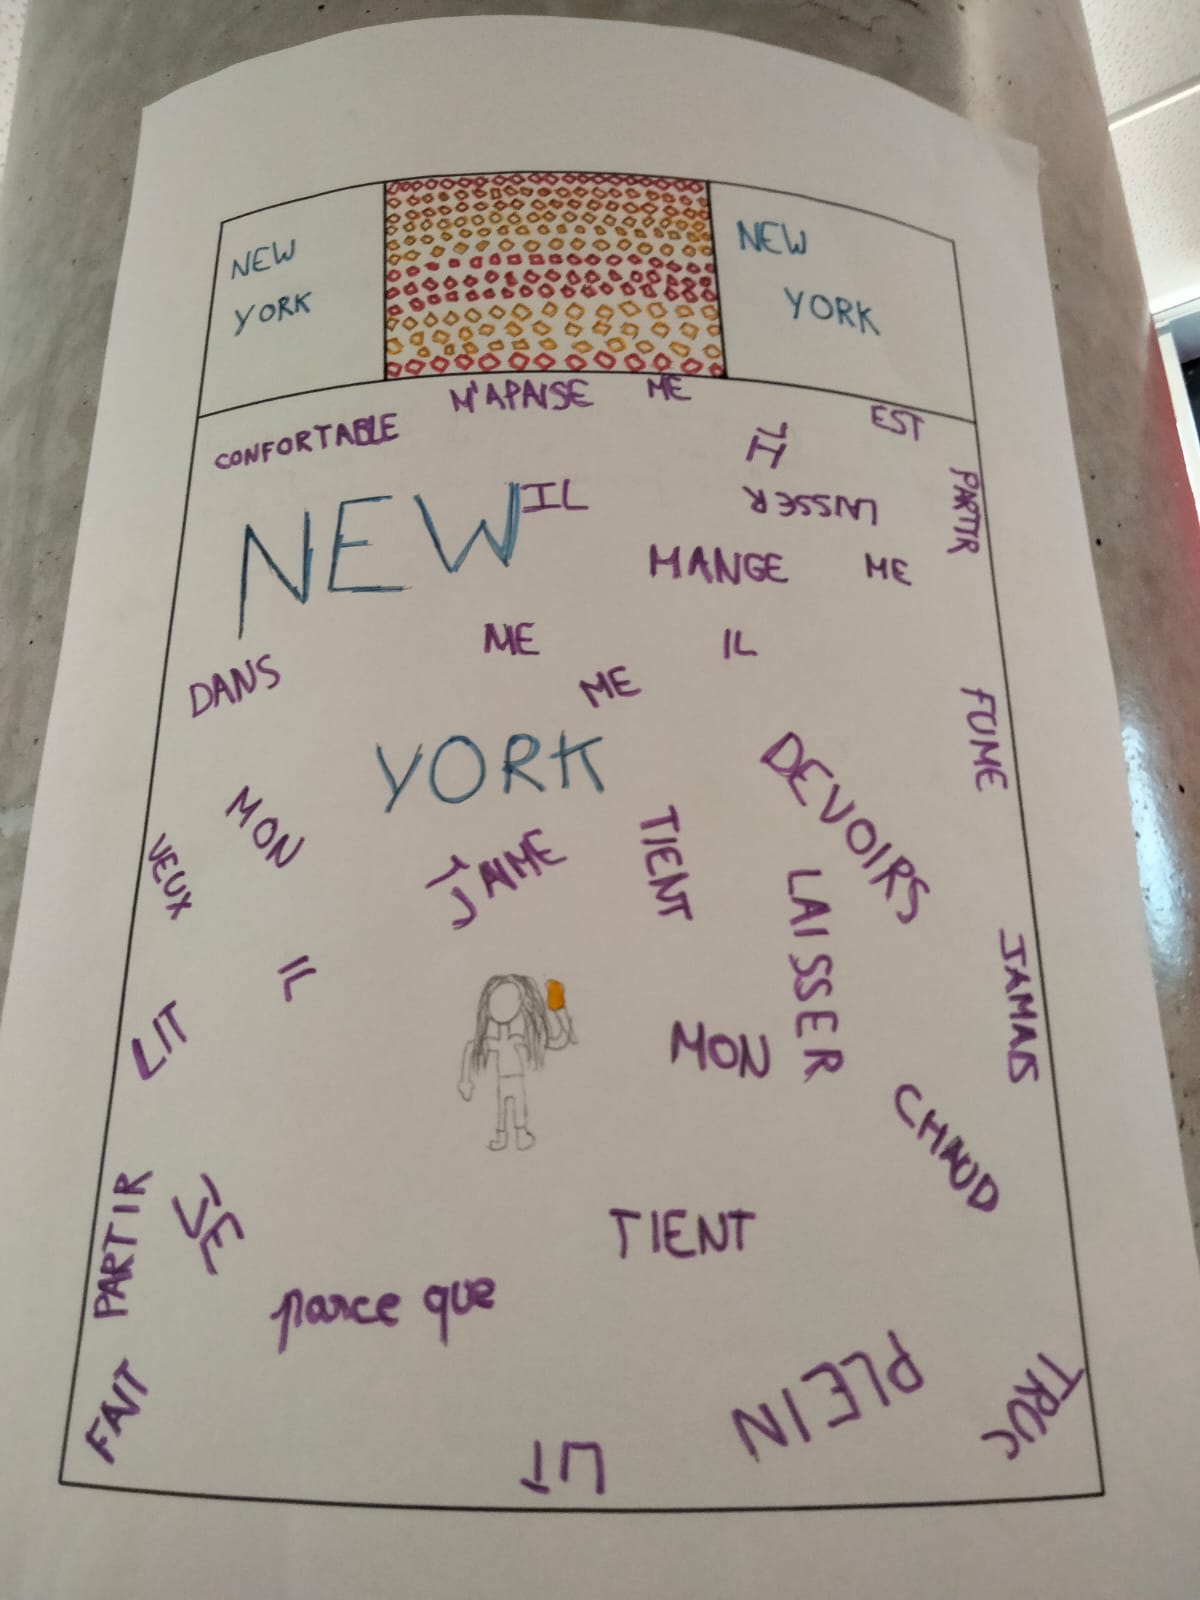 NEW
YORK
NEW
YORK
M'APAISE
ME
CONFORTABLE
EST
IL
LAISSER
PARTIR
NEW
IL
MANGE
ME
ME
IL
DANS
ME
FUME
YORK
DEVOIRS
MON
VEUX
J'AIME
TIENT
LAISSER
JAMAIS
IL
LIT
MON
CHAUD
PARTIR
JE
TIENT
parce que
FAIT
PLEIN
TRUC
LIT